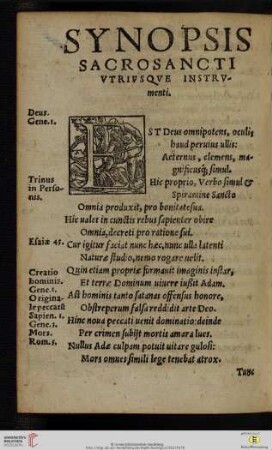 SYNOPSIS
SACROSANCTI
VTRIVSQVE INSTRV-
menti.
Deus.
Gene.1.
EST Deus omnipotens, oculis
haud peruius ullis:
Aeternus, clemens, ma-
gnificusq; simul.
Trinus
in Perso-
nis.
Hic proprio, Verbo simul &
Spiramine Sancto
Omnia produxit, pro bonitate sua.
Hic ualet in cunctis rebus sapienter obire
Omnia, decreti pro ratione sui.
Esaiæ 45.
Cur igitur faciat nunc hæc, nunc illa latenti
Naturæ studio, nemo rogare uelit.
Creatio
hominis.
Gene.1.
Quin etiam propriæ formauit imaginis instar,
Et terræ Dominum uiuere iussit Adam.
Origina-
le peccatũ
Sapien.2.
Ast hominis tanto satanas offensus honore,
Obstreperum falsa reddidit arte Deo.
Gene.3.
Hinc noua peccati uenit dominatio: deinde
Mors.
Per crimen subijt mortis amara lues.
Rom.5.
Nullus Adæ culpam potuit uitare gulosi:
Mors omnes simili lege tenebat atrox.
Tunc